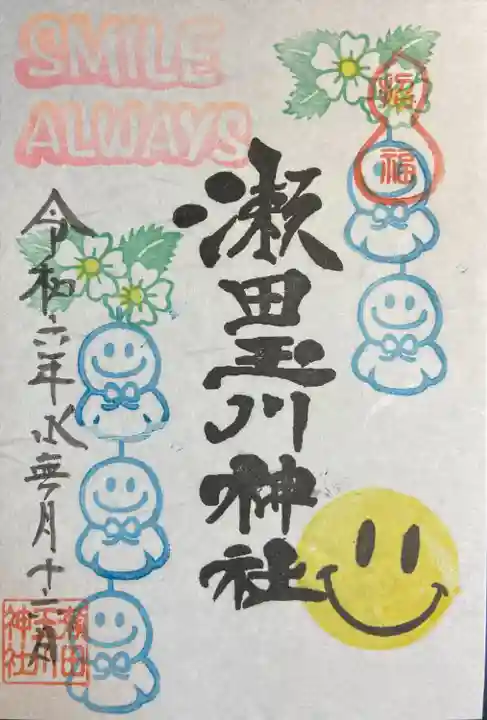 SMILE
ALWAYS
招福
瀬田玉川神社
令和六年水無月十二日
瀬田
玉川
神社